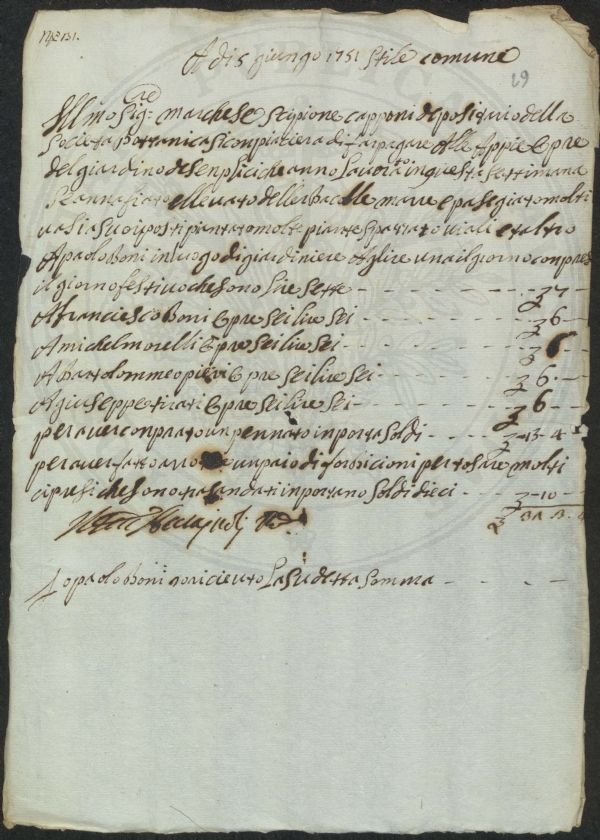 Nº 131.
A dì 5 giungo 1751 stile comune
69
Ill mo Sig:re marchese Scipione capponi depositario della
Societa Bottanica si conpiacera di far pagare Alle
del giardino de senplici che anno lavorato in questa settimana
e pasegiato molti
vasi a suoi posti piantato molte piante spazzato viali e altro
A paolo Boni in luogo di giardiniere A lire una il giorno conpreso
il giorno festivo che sono lire sette - - - - 7 -
A franciesco Boni opre sei lire sei - - - - 6 -
A michel morelli opre sei lire sei - - - - 6
A Bartolommeo pieri opre sei lire sei - - - - 6 -
A giuseppe tirati opre sei lire sei - - - - 6 -
per aver conprato un pennato inporta soldi - - - - 13 4
per aver fatto un paio di forbicioni per tosare molti
cipresi che sono trasandati inportano soldi dieci - - - - 10 -
31. 13. 4
Io paolo Boni o ricieuto la sudetta somma - - - -